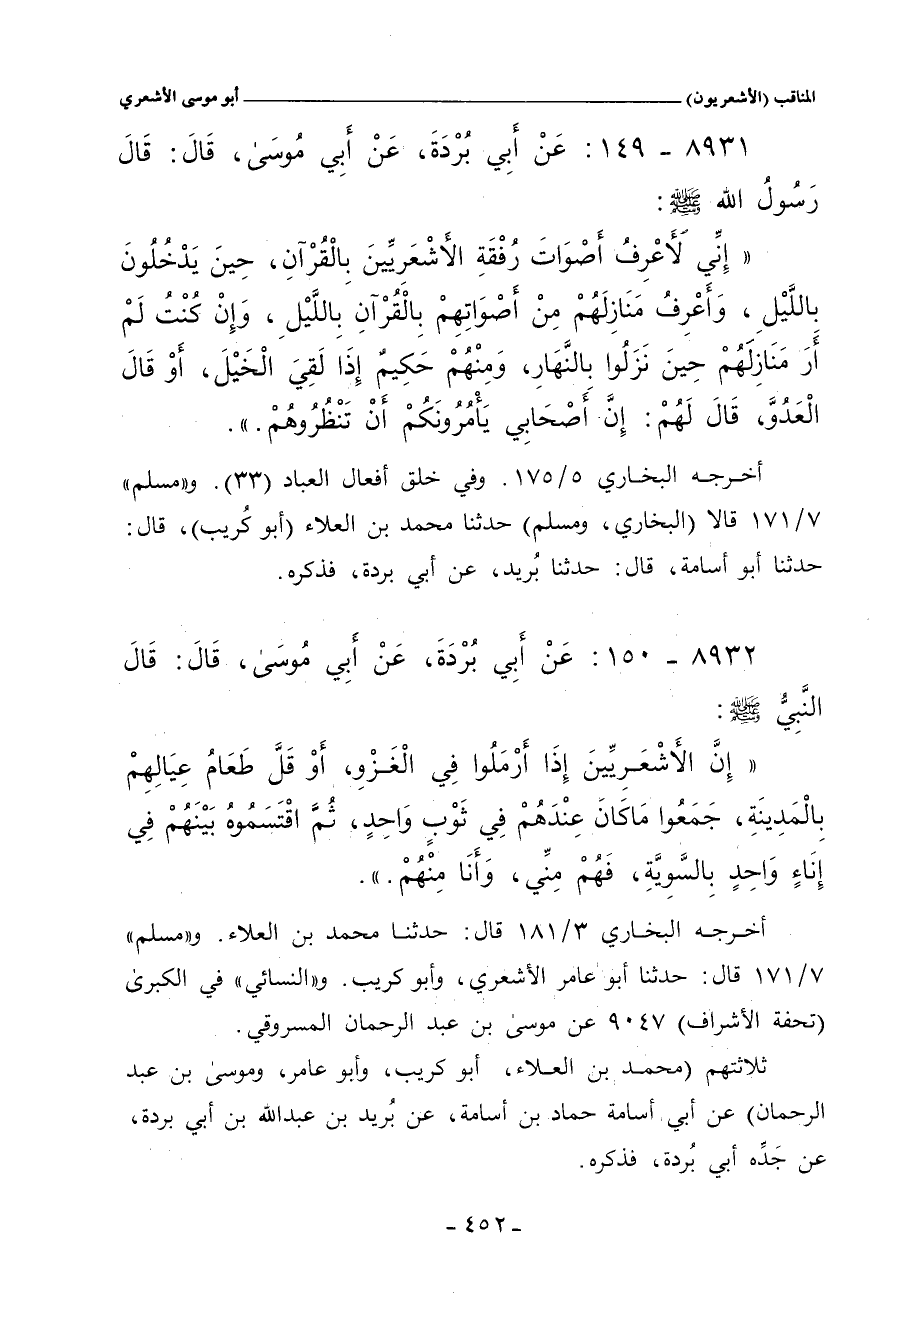 المناقب (الأشعريون) ــــــــــ أبو موسى الأشعري
٨٩٣١ ـ ١٤٩ : عَنْ أَبِي بُرْدَةَ، عَنْ أَبِي مُوسَىٰ، قَالَ: قَالَ
رَسُولُ الله ﷺ :
« إِنِّي لَأَعْرِفُ أَصْوَاتَ رُفْقَةِ الأَشْعَرِيِّينَ بِالْقُرْآنِ، حِينَ يَدْخُلُونَ
بِاللَّيْلِ ، وَأَعْرِفُ مَنَازِلَهُمْ مِنْ أَصْوَاتِهِمْ بِالْقُرْآنِ بِاللَّيْلِ ، وَإِنْ كُنْتُ لَمْ
أَرَ مَنَازِلَهُمْ حِينَ نَزَلُوا بِالنَّهَارِ، وَمِنْهُمْ حَكِيمٌ إِذَا لَقِيَ الْخَيْلَ، أَوْ قَالَ
الْعَدُوَّ، قَالَ لَهُمْ: إِنَّ أَصْحَابِي يَأْمُرُونَكُمْ أَنْ تَنْظُرُوهُمْ.».
أخرجه البخاري ١٧٥/٥ . وفي خلق أفعال العباد (٣٣). و«مسلم»
١٧١/٧ قالا (البخاري، ومسلم) حدثنا محمد بن العلاء (أبو كُريب)، قال:
حدثنا أبو أسامة، قال: حدثنا بُريد، عن أبي بردة، فذكره.
٨٩٣٢ ـ ١٥٠ : عَنْ أَبِي بُرْدَةَ، عَنْ أَبِي مُوسَىٰ، قَالَ: قَالَ
النَّبِيُّ ﷺ :
« إِنَّ الأَشْعَرِيِّينَ إِذَا أَرْمَلُوا فِي الْغَزْوِ، أَوْ قَلَّ طَعَامُ عِيَالِهِمْ
بِالْمَدِينَةِ، جَمَعُوا مَاكَانَ عِنْدَهُمْ فِي ثَوْبٍ وَاحِدٍ، ثُمَّ اقْتَسَمُوهُ بَيْنَهُمْ فِي
إِنَاءٍ وَاحِدٍ بِالسَّوِيَّةِ، فَهُمْ مِنِّي، وَأَنَا مِنْهُمْ.».
أخرجه البخاري ١٨١/٣ قال: حدثنا محمد بن العلاء. و«مسلم»
١٧١/٧ قال: حدثنا أبو عامر الأشعري، وأبو كريب. و«النسائي» في الكبرىٰ
(تحفة الأشراف) ٩٠٤٧ عن موسىٰ بن عبد الرحمان المسروقي.
ثلاثتهم (محمد بن العلاء، أبو كريب، وأبو عامر، وموسىٰ بن عبد
الرحمان) عن أبي أسامة حماد بن أسامة، عن بُريد بن عبدالله بن أبي بردة،
عن جَدِّه أبي بُردة، فذكره.
ـ ٤٥٢ ـ